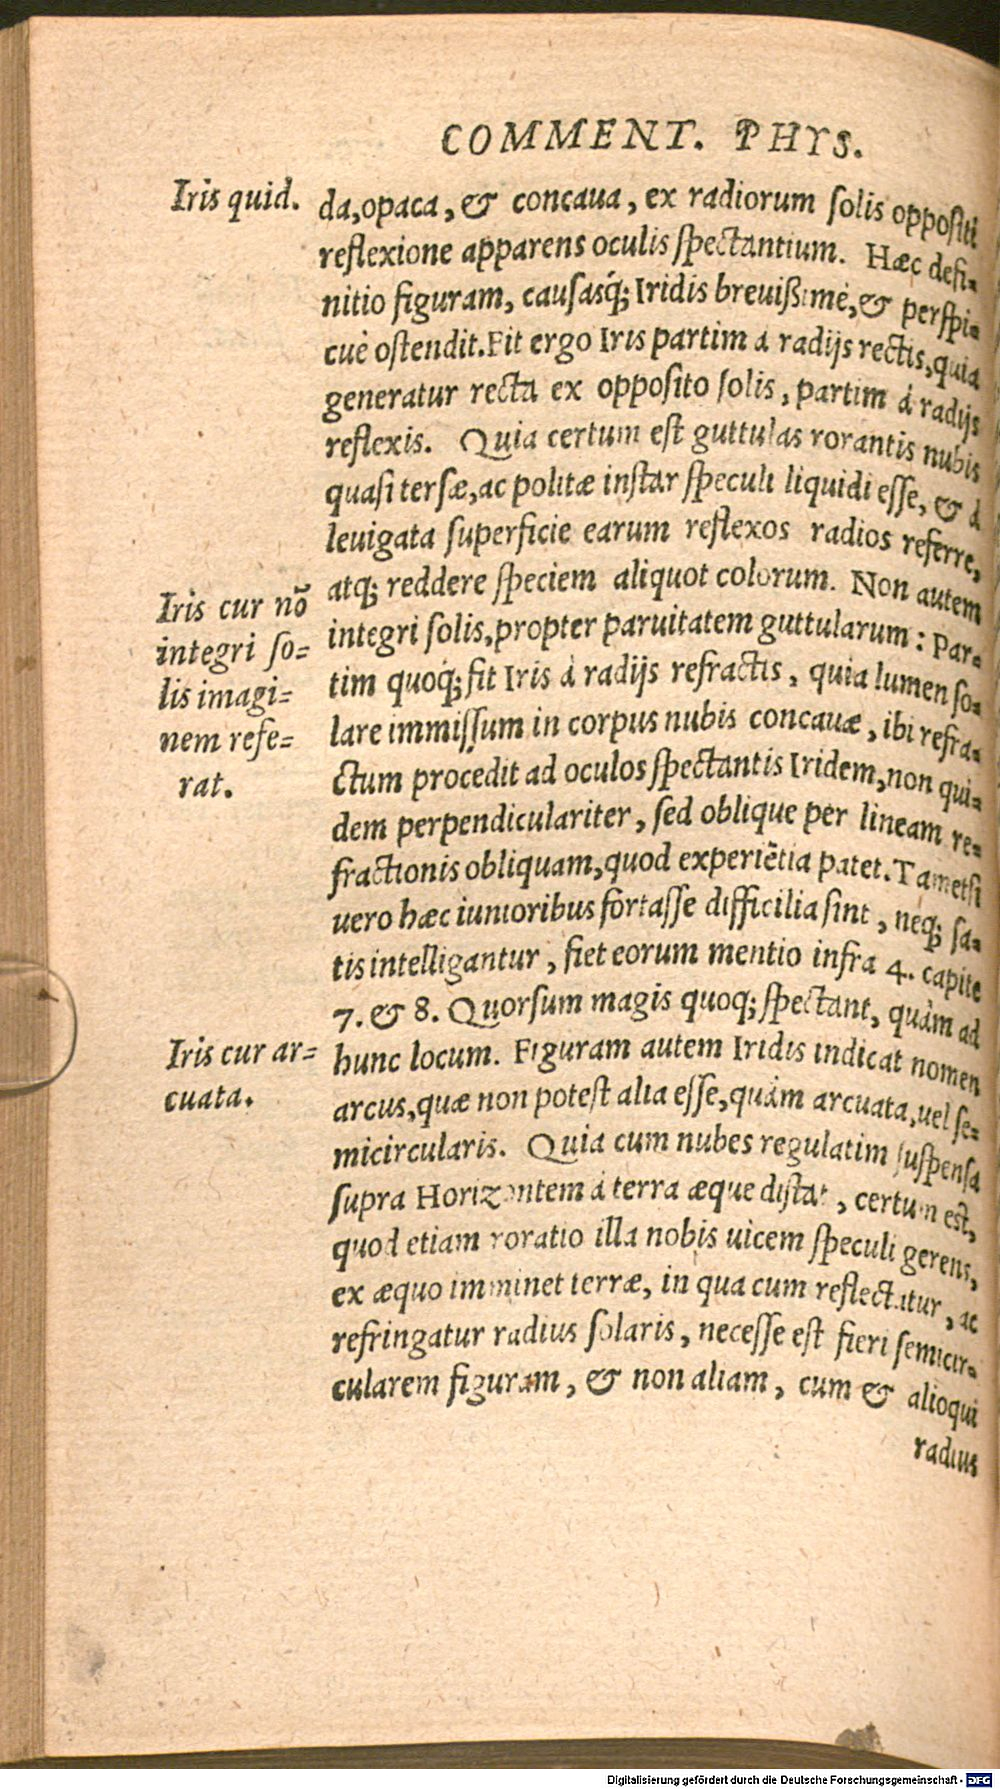 COMMENT. PHYS.
Iris quid.
da, opaca, & concaua, ex radiorum solis oppositi
reflexione apparens oculis spectantium. Hæc defi-
nitio figuram, causasq́; Iridis breuißimè, & perspi-
cuè ostendit. Fit ergo Iris partim à radijs rectis, quia
generatur recta ex opposito solis, partim à radijs
reflexis. Quia certum est guttulas rorantis nubis
quasi tersæ, ac politæ instar speculi liquidi esse, & à
leuigata superficie earum reflexos radios referre,
atq; reddere speciem aliquot colorum. Non autem
integri solis, propter paruitatem guttularum: Par-
tim quoq́; fit Iris à radijs refractis, quia lumen so-
lare immissum in corpus nubis concauæ, ibi refra-
ctum procedit ad oculos spectantis Iridem, non qui-
dem perpendiculariter, sed oblique per lineam re-
fractionis obliquam, quod experiētia patet. Tametsi
uero hæc iunioribus fortasse difficilia sint, neq; sa-
tis intelligantur, fiet eorum mentio infra 4. capite
7. & 8. Quorsum magis quoq; spectant, quàm ad
hunc locum. Figuram autem Iridis indicat nomen
arcus, quæ non potest alia esse, quàm arcuata, uel se-
micircularis. Quia cum nubes regulatim suspensa
supra Horizontem à terra æque distat, certum est,
quod etiam roratio illa nobis uicem speculi gerens,
ex æquo imminet terræ, in qua cum reflectatur, ac
refringatur radius solaris, necesse est fieri semicir-
cularem figuram, & non aliam, cum & alioqui
radius
Iris cur nō
integri so-
lis imagi-
nem refe-
rat.
Iris cur ar-
cuata.
Digitalisierung gefördert durch die Deutsche Forschungsgemeinschaft - DFG